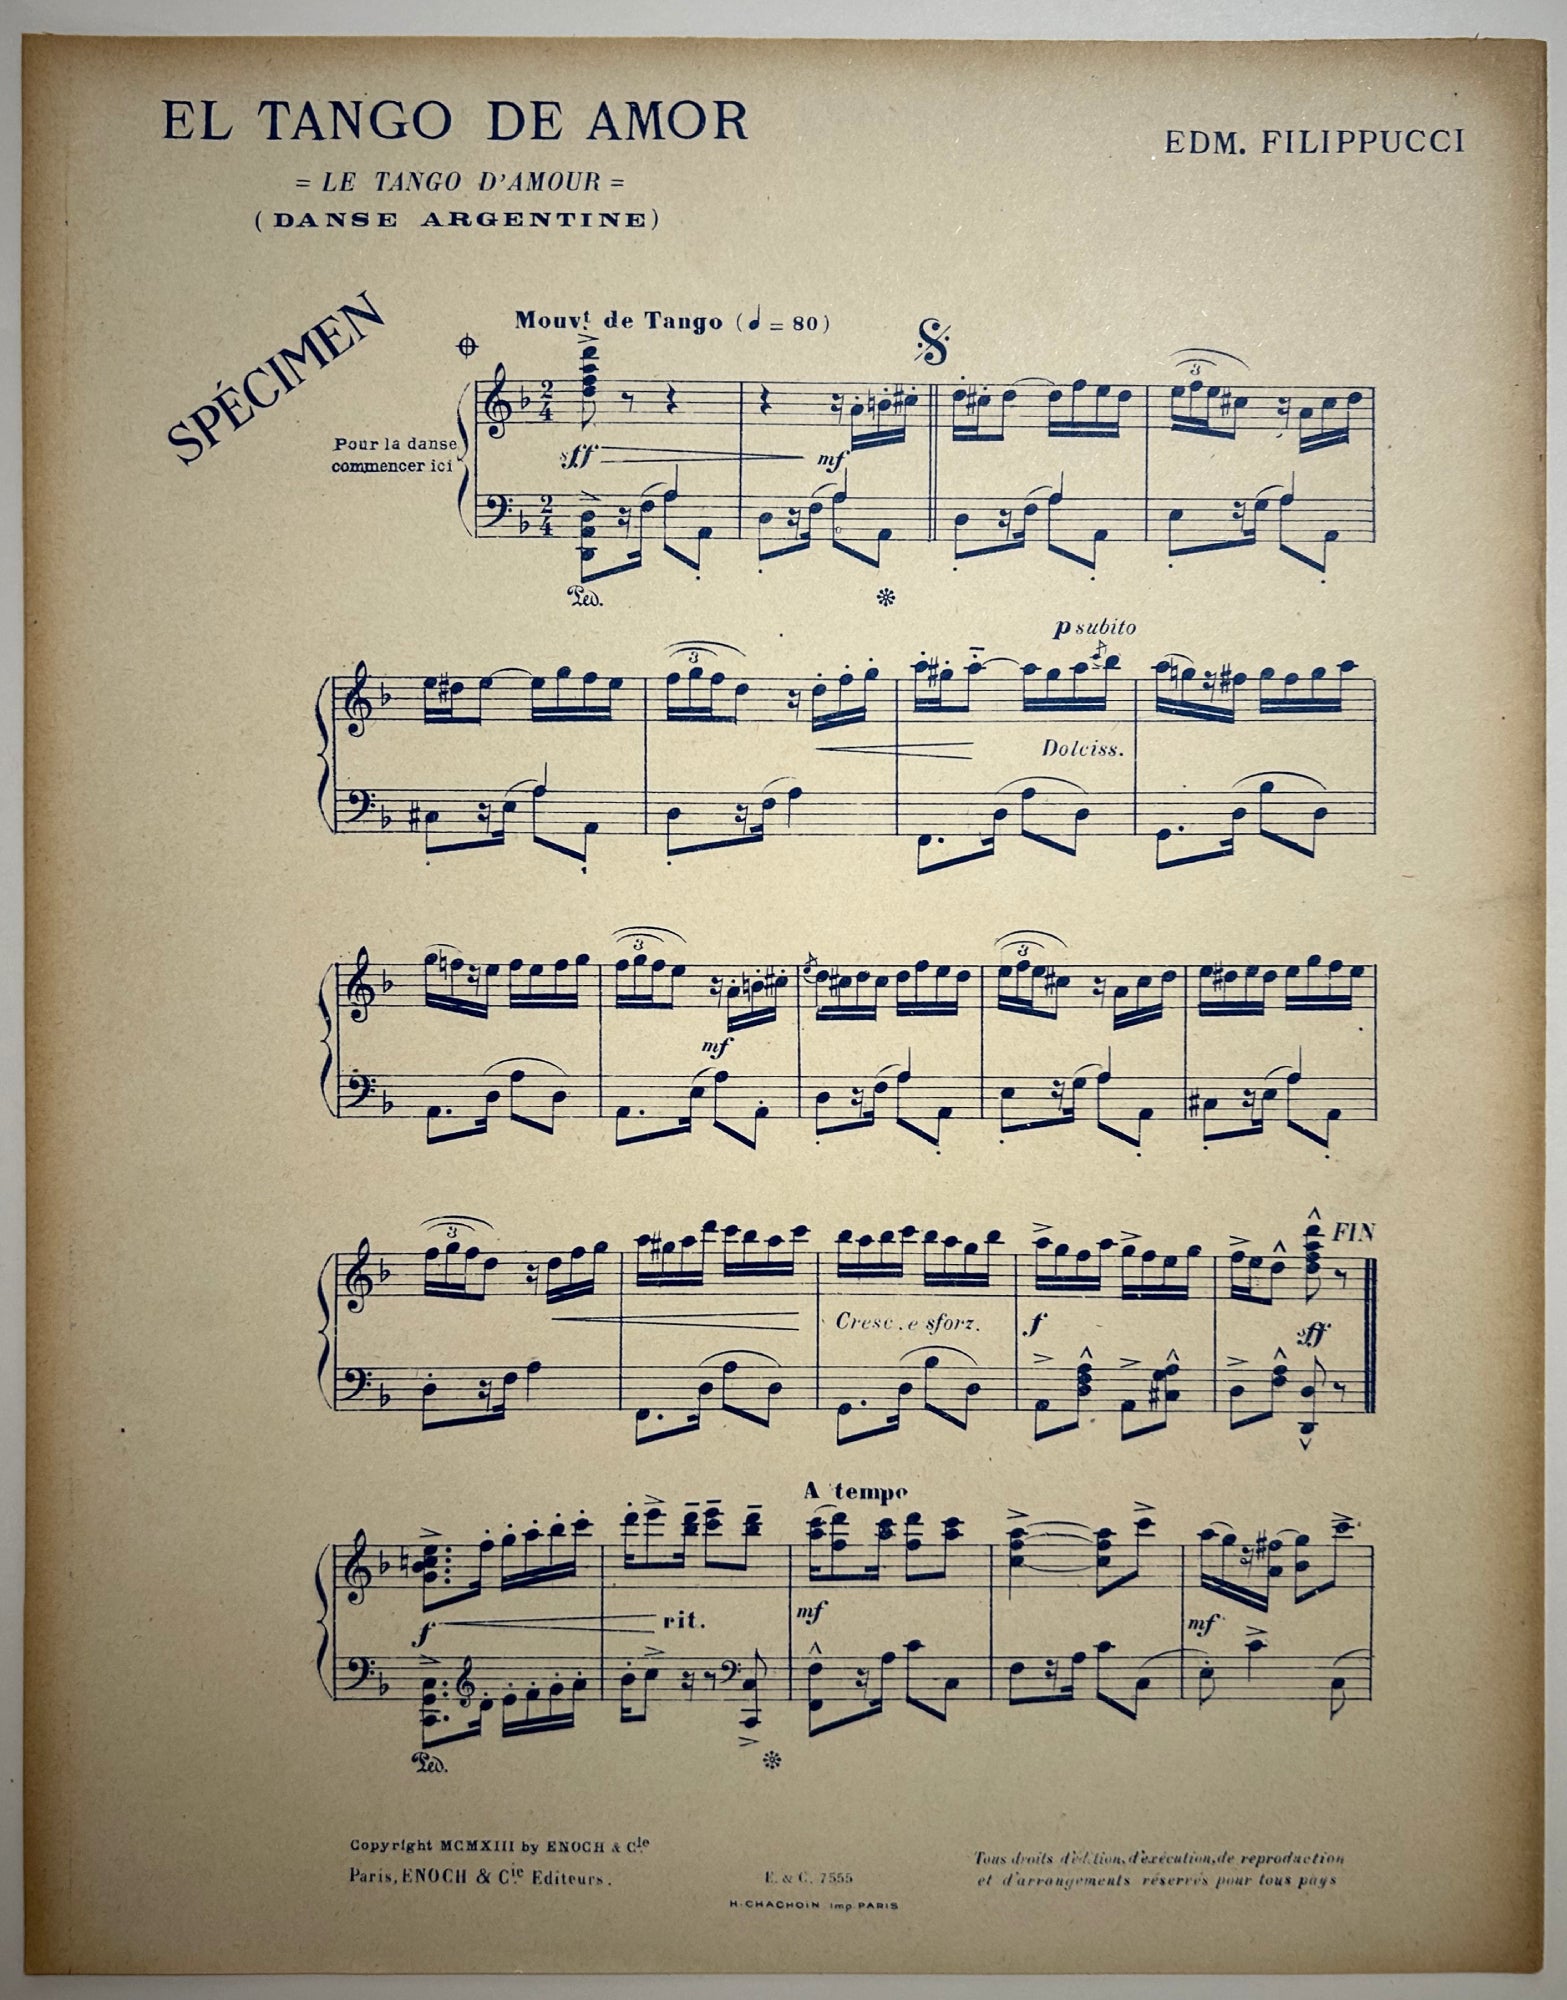 EL TANGO DE AMOR
EDM. FILIPPUCCI
= LE TANGO D'AMOUR =
(DANSE ARGENTINE)
SPÉCIMEN
Mouvt de Tango (♩ = 80)
Pour la danse
commencer ici
2/4
3
sff
mf
2/4
Ped.
p subito
3
Dolciss.
3
3
mf
3
FIN
Cresc. e sforz.
f
sff
A tempo
f
rit.
mf
mf
Ped.
Copyright MCMXIII by ENOCH & Cie
Paris, ENOCH & Cie Editeurs.
E. & C. 7555
H. CHACHOIN Imp. PARIS
Tous droits d'édition, d'exécution, de reproduction
et d'arrangements réservés pour tous pays